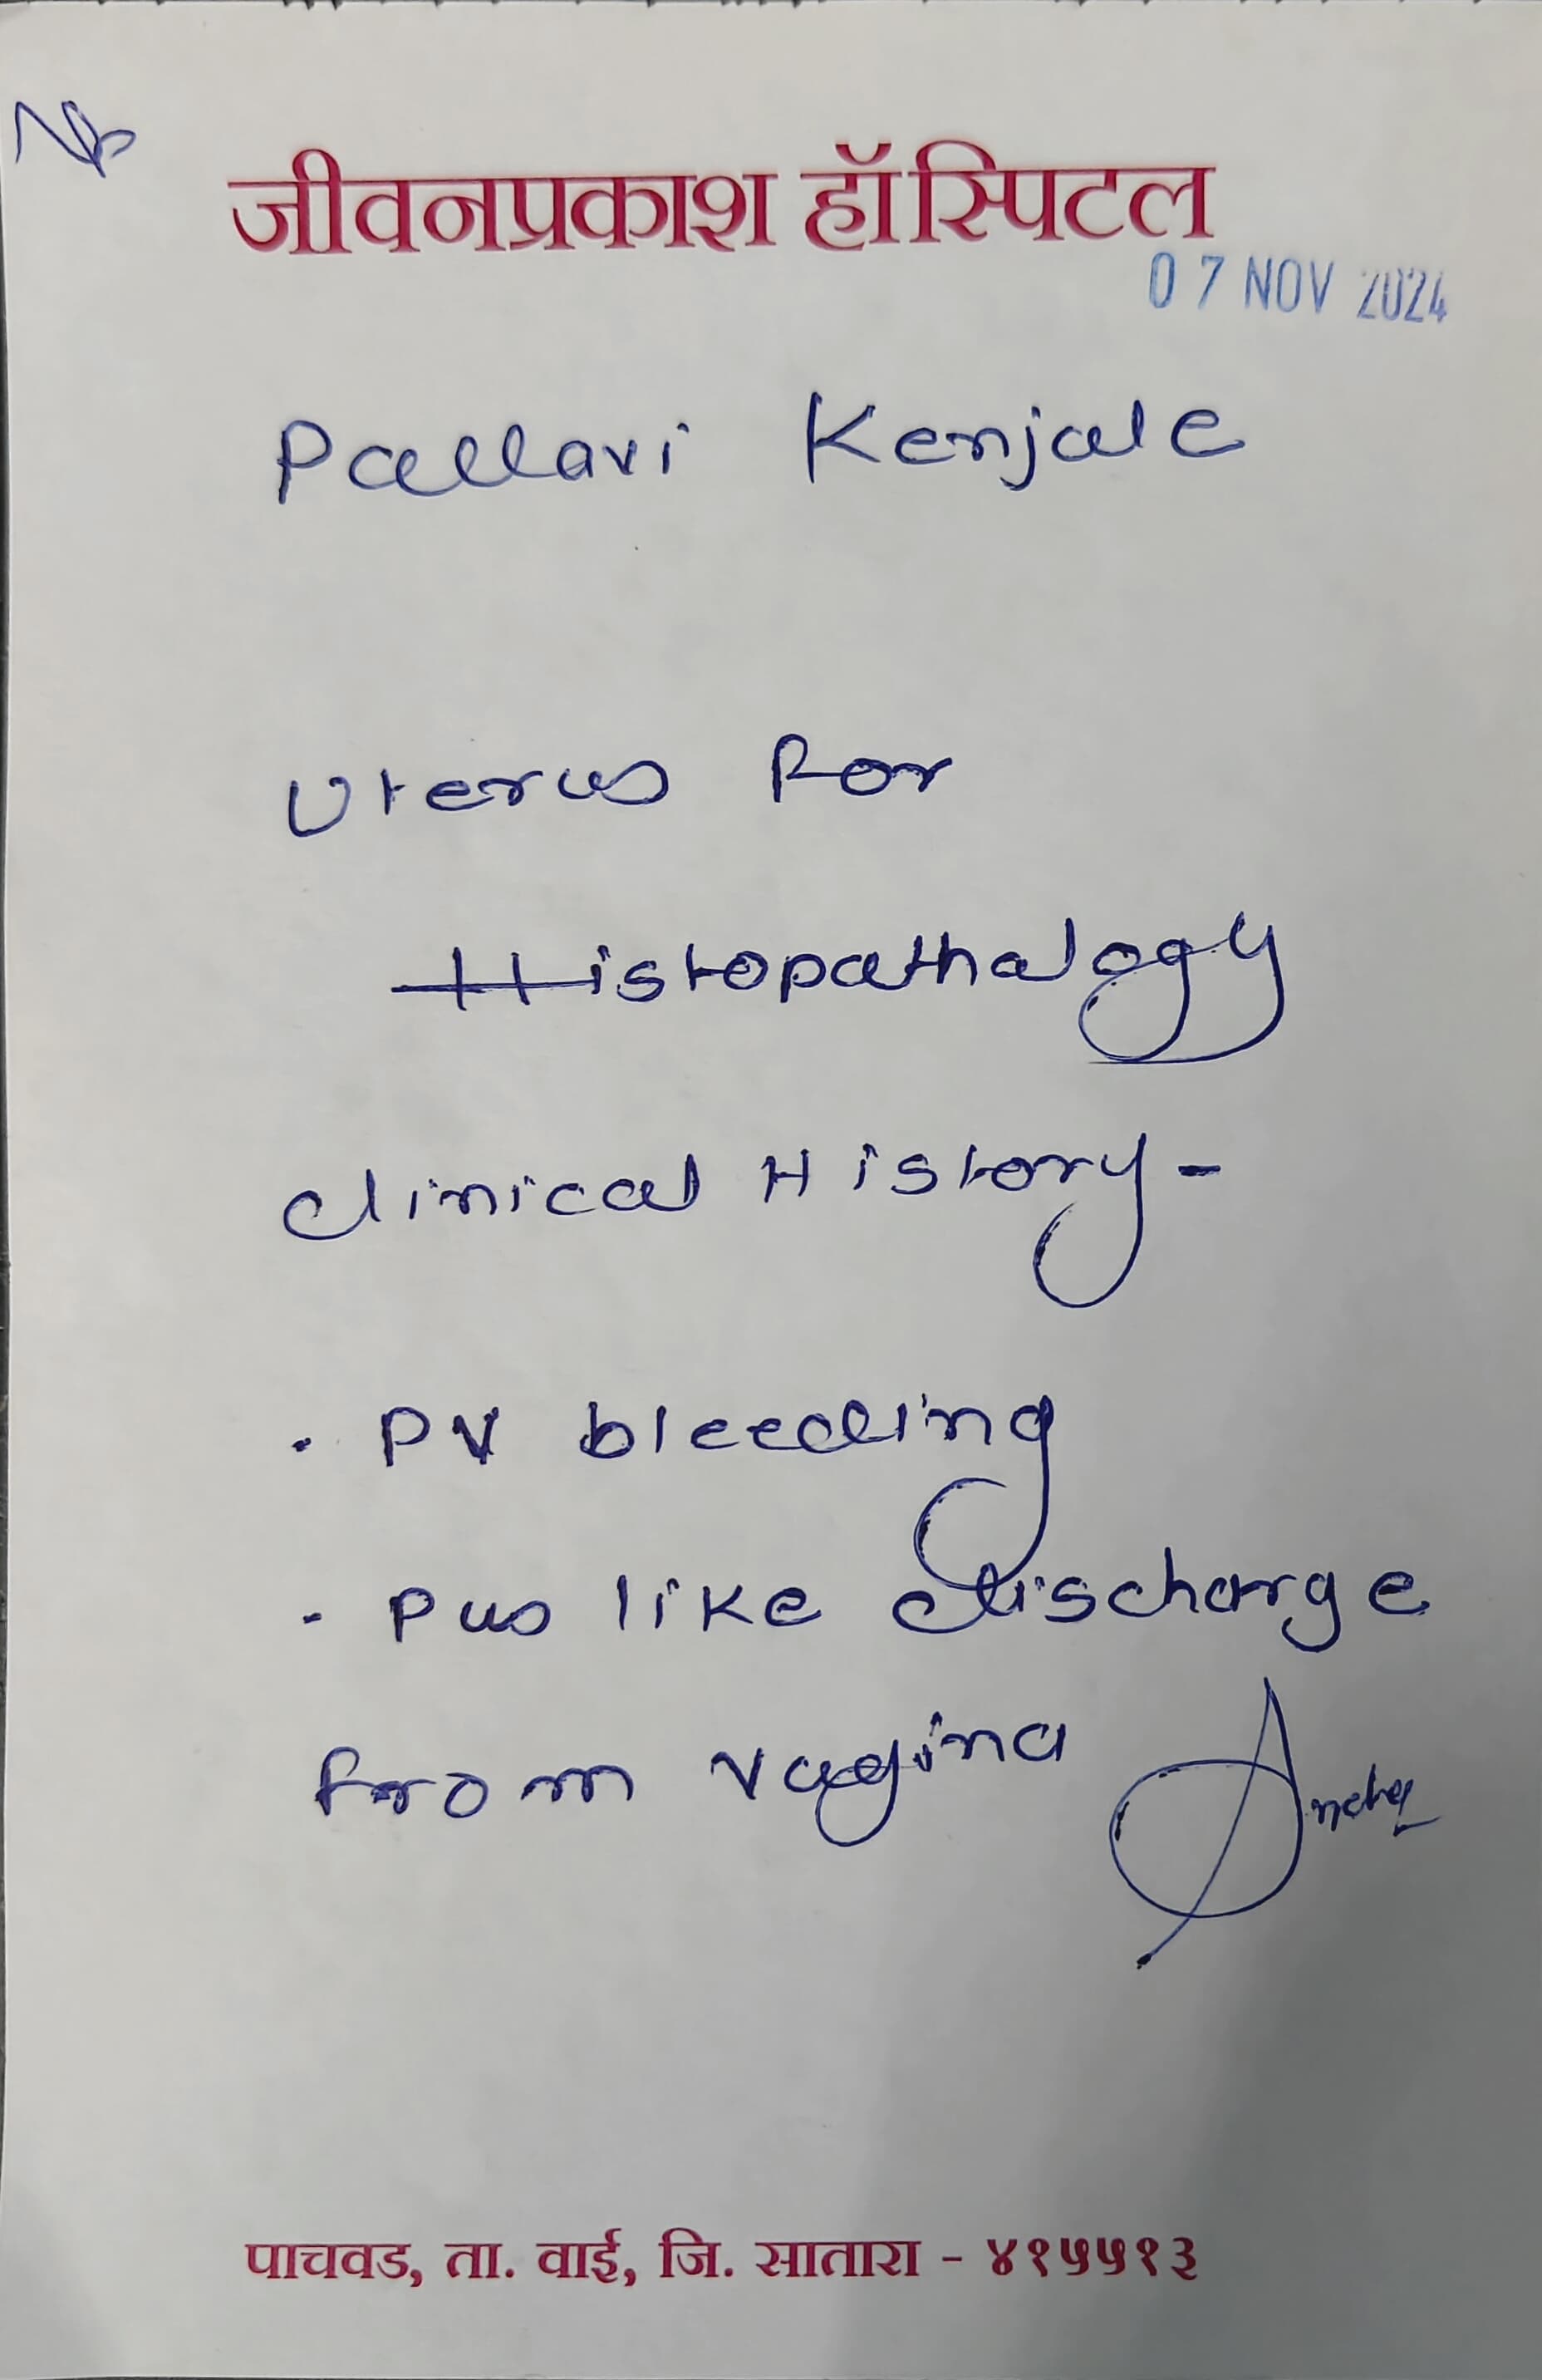 जीवनप्रकाश हॉस्पिटल
07 NOV 2024
Pallavi Kenjale
Uterus For
Histopathalogy
Clinical History-
. PV bleeding
. Pus like discharge
from vagina
पाचवड, ता. वाई, जि. सातारा - ४१५५१३